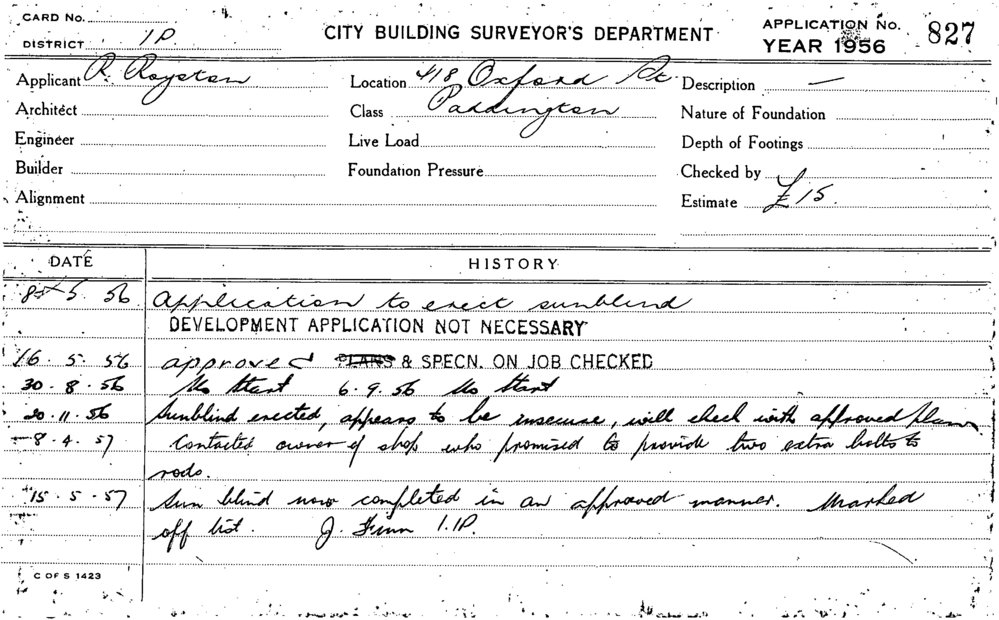 CARD No.
DISTRICT 1P.
CITY BUILDING SURVEYOR'S DEPARTMENT
APPLICATION No. 827
YEAR 1956
Applicant R. Royston
Location 418 Oxford St
Description —
Architect
Class Paddington
Nature of Foundation
Engineer
Live Load
Depth of Footings
Builder
Foundation Pressure
Checked by
Alignment
Estimate £15.
DATE HISTORY
8 5. 56 Application to erect sunblind
DEVELOPMENT APPLICATION NOT NECESSARY
16. 5. 56 approved PLANS & SPECN. ON JOB CHECKED
30. 8. 56 No Start 6. 9. 56 No Start
20. 11. 56 Sunblind erected, appears to be insecure, will check with approved plans
8. 4. 57 Contacted owner of shop who promised to provide two extra bolts to
rods.
15. 5. 57 Sun blind now completed in an approved manner. Marked
off list. J. Finn 1.1P.
C OF S 1423